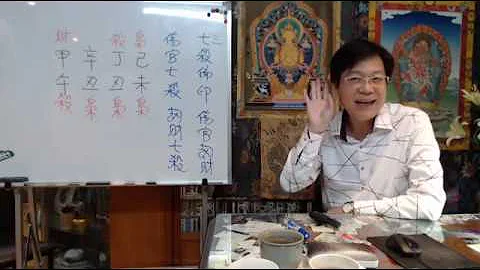 財 殺 梟
甲 辛 丁 己
午 丑 丑 未
殺 梟 梟 梟
七殺佩印 傷官劫財
傷官七殺 劫財七殺